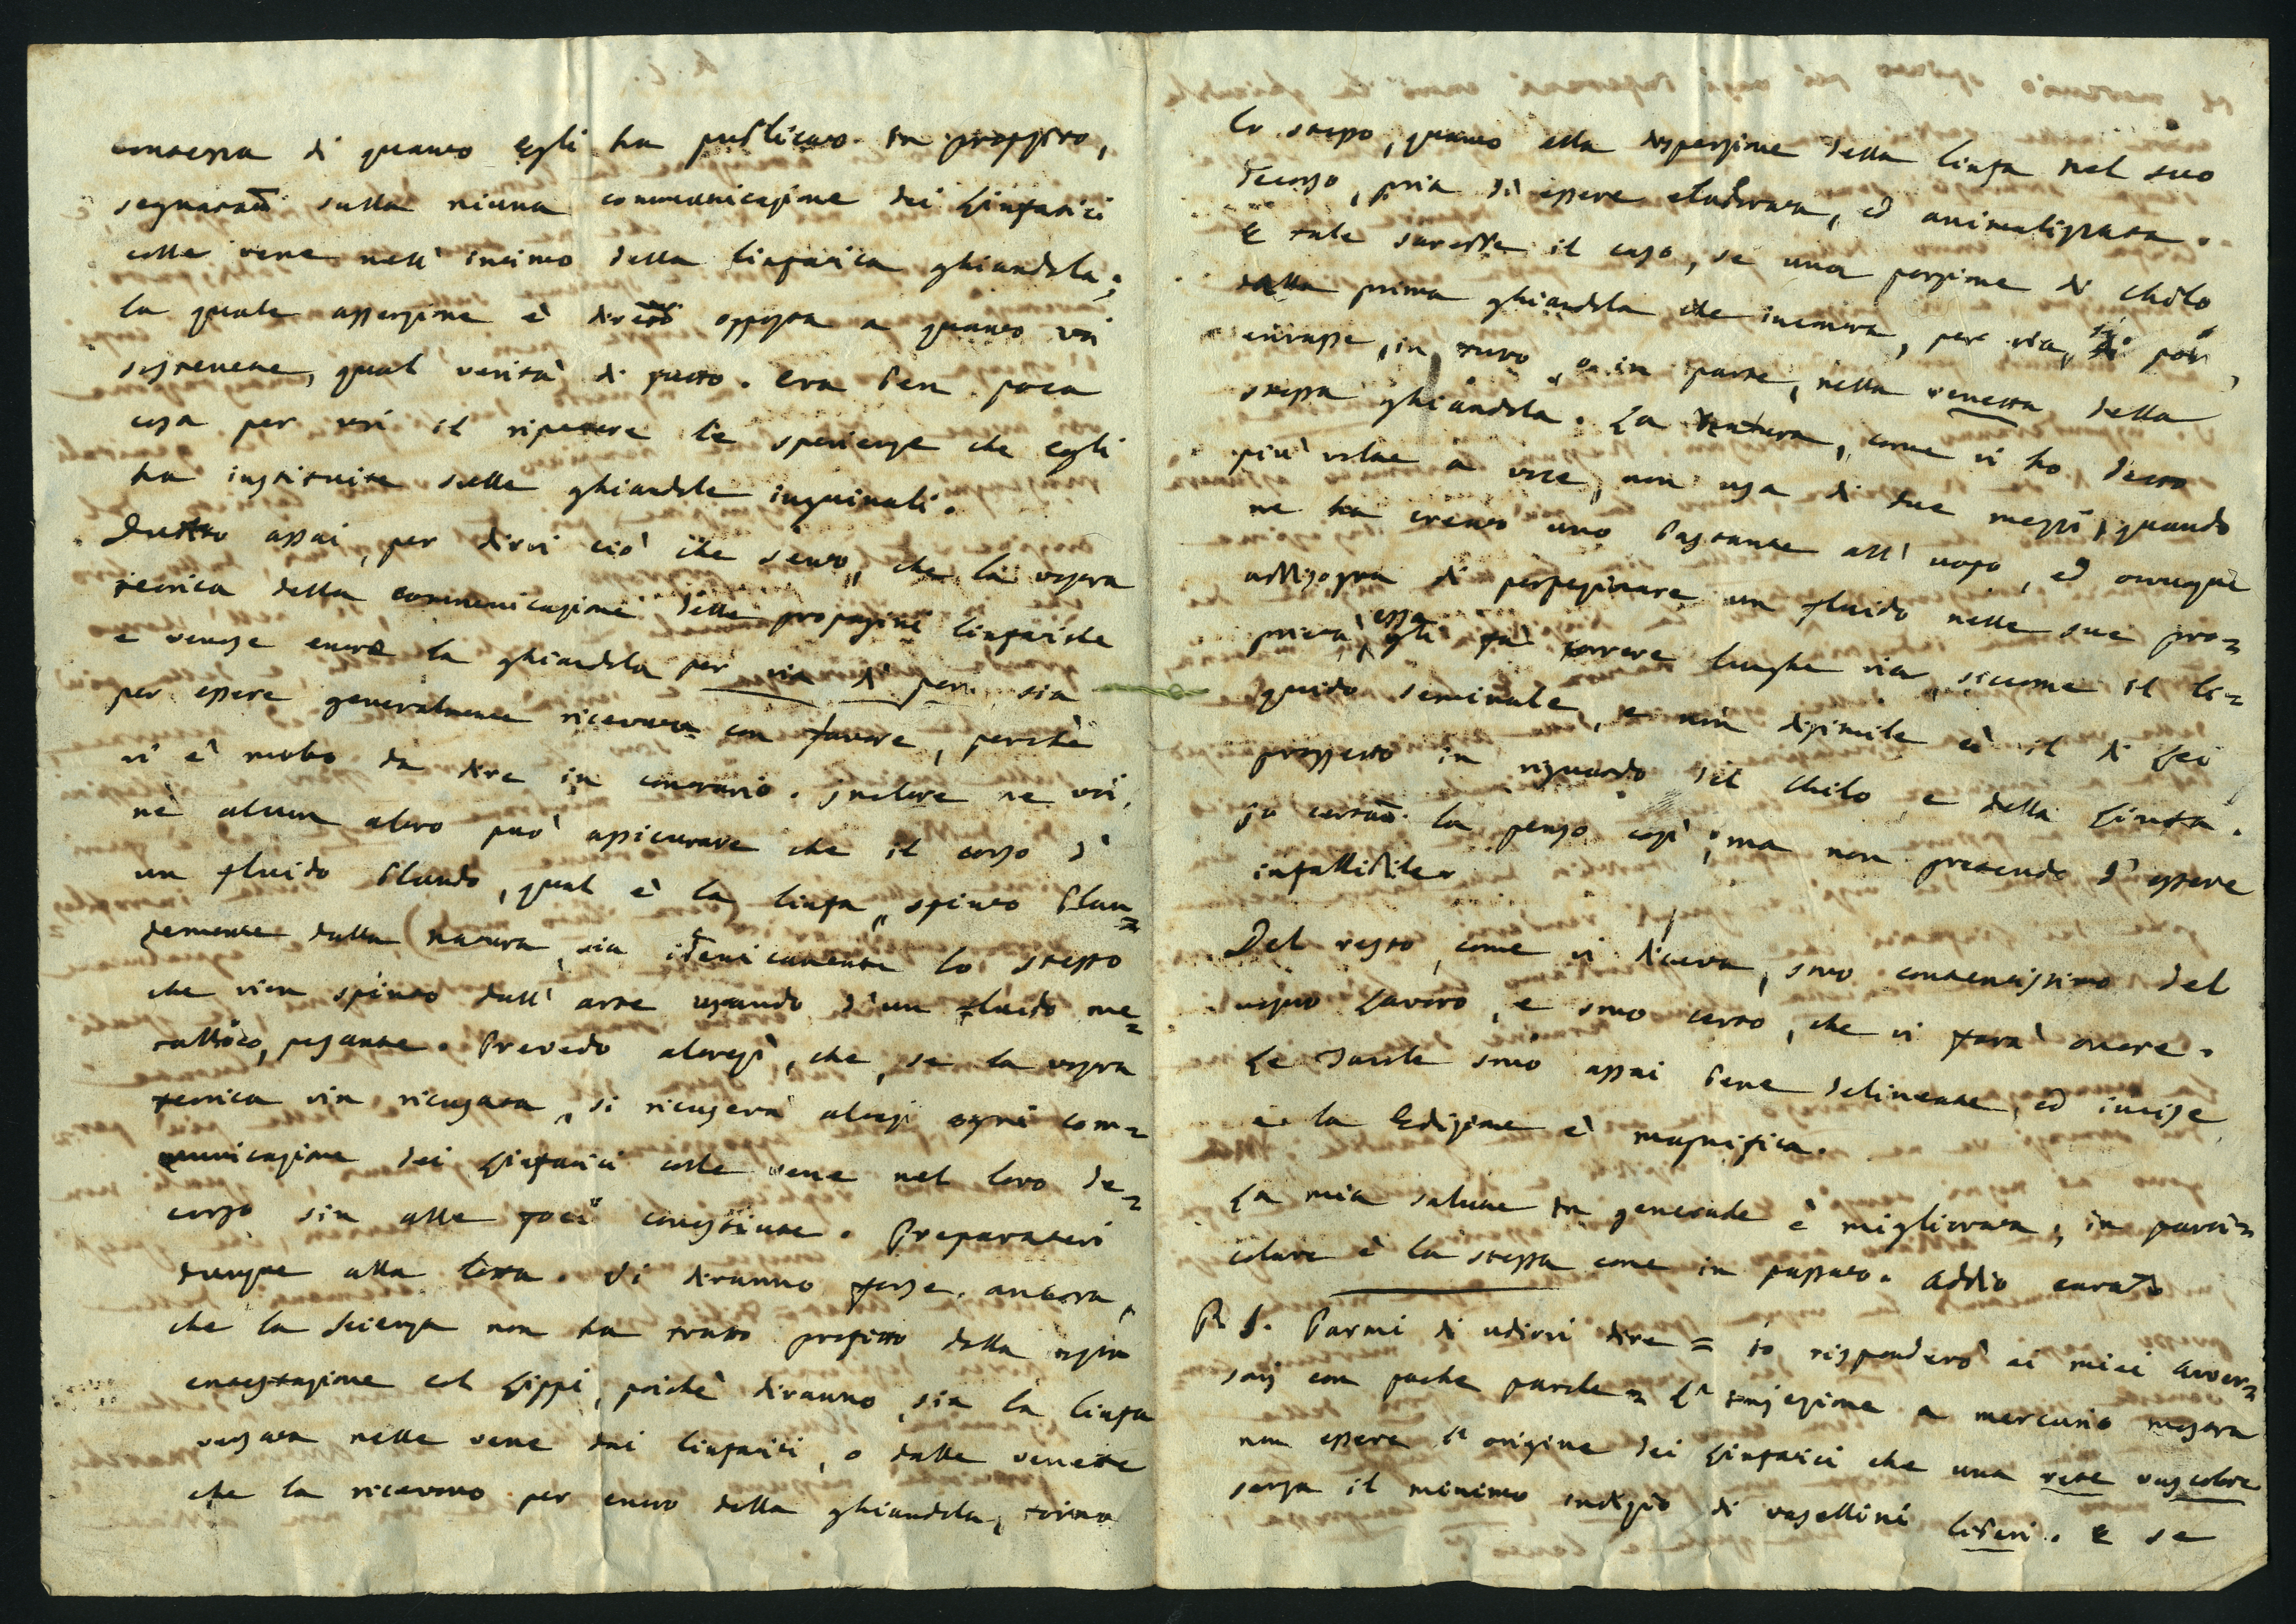 contezza di quanto Egli ha publicato in proposito,
segnatam̃ sulla niuna communicazione dei Linfatici
colle vene nell' intimo della linfatica ghiandola;
la quale asserzione è dirett̃e opposta a quanto voi
sostenete, qual verità di fatto. Era ben poca
cosa per voi il ripetere le sperienze che egli
ha instituite sulle ghiandole inguinali.
Dubito assai, per dirvi ciò che sento, che la vostra
teorica della communicazione delle propagini linfatiche
e venose entro la ghiandola per via di pori, sia
per essere generalmente ricevuta con favore, perchè
vi è molto da dire in contrario. Inoltre ne voi,
nè alcun altro può assicurare che il corso d'
un fluido blando, qual è la linfa, spinto blan=
demente dalla natura, sia identicamente lo stesso
che vien spinto dall' arte usando d'un fluido me=
tallico, pesante. Prevedo altresì, che, se la vostra
teorica vien ricusata, si ricuserà altresì ogni com=
municazione dei Linfatici colle vene nel loro de=
corso sin alle foci congiunte. Preparatevi
dunque alla lotta. Vi diranno forse ancora,
che la Scienza non ha tratto profitto dalla vostra
contestazione col Lippi, poichè diranno, sia la linfa
versata nelle vene dai linfatici, o dalle venette
che la ricevono per entro della ghiandola, torna
lo stesso, quanto alla dispersione della linfa nel suo
decorso, pria di essere elaborata, ed animalizzata.
E tale sarebbe il caso, se una porzione di chilo
dalla prima ghiandola che incontra, per via di pori,
entrasse, in tutto o in parte, nella venetta della
stessa ghiandola. La Natura, come vi ho detto
più volte a voce, non usa di due mezzi, quando
ne ha creato uno bastante all' uopo, ed ovunque
abbisogna di perfezionare un fluido nelle sue pro=
prietà, essa gli fà correre lunghe vie, siccome il li=
quido seminale, e non dissimile è il di Lei
progetto in riguardo del chilo, e della Linfa.
Io certam̃ la penso così; ma non pretendo d'essere
infallibile.
Del resto, come vi diceva, sono contentissimo del
vostro Lavoro, e sono certo, che vi farà onore.
Le Tavole sono assai bene delineate, ed incise
e la Edizione è magnifica.
La mia salute in generale è migliorata; in parti=
colare è la stessa come in passato. Addio carato
P. S. Parmi di udirvi dire = io risponderò ai miei Avver=
sarj con poche parole = L' injezione a mercurio mostra
non essere l' origine dei Linfatici che una rete vascolare
senza il minimo indizio di vasellini liberi. E se